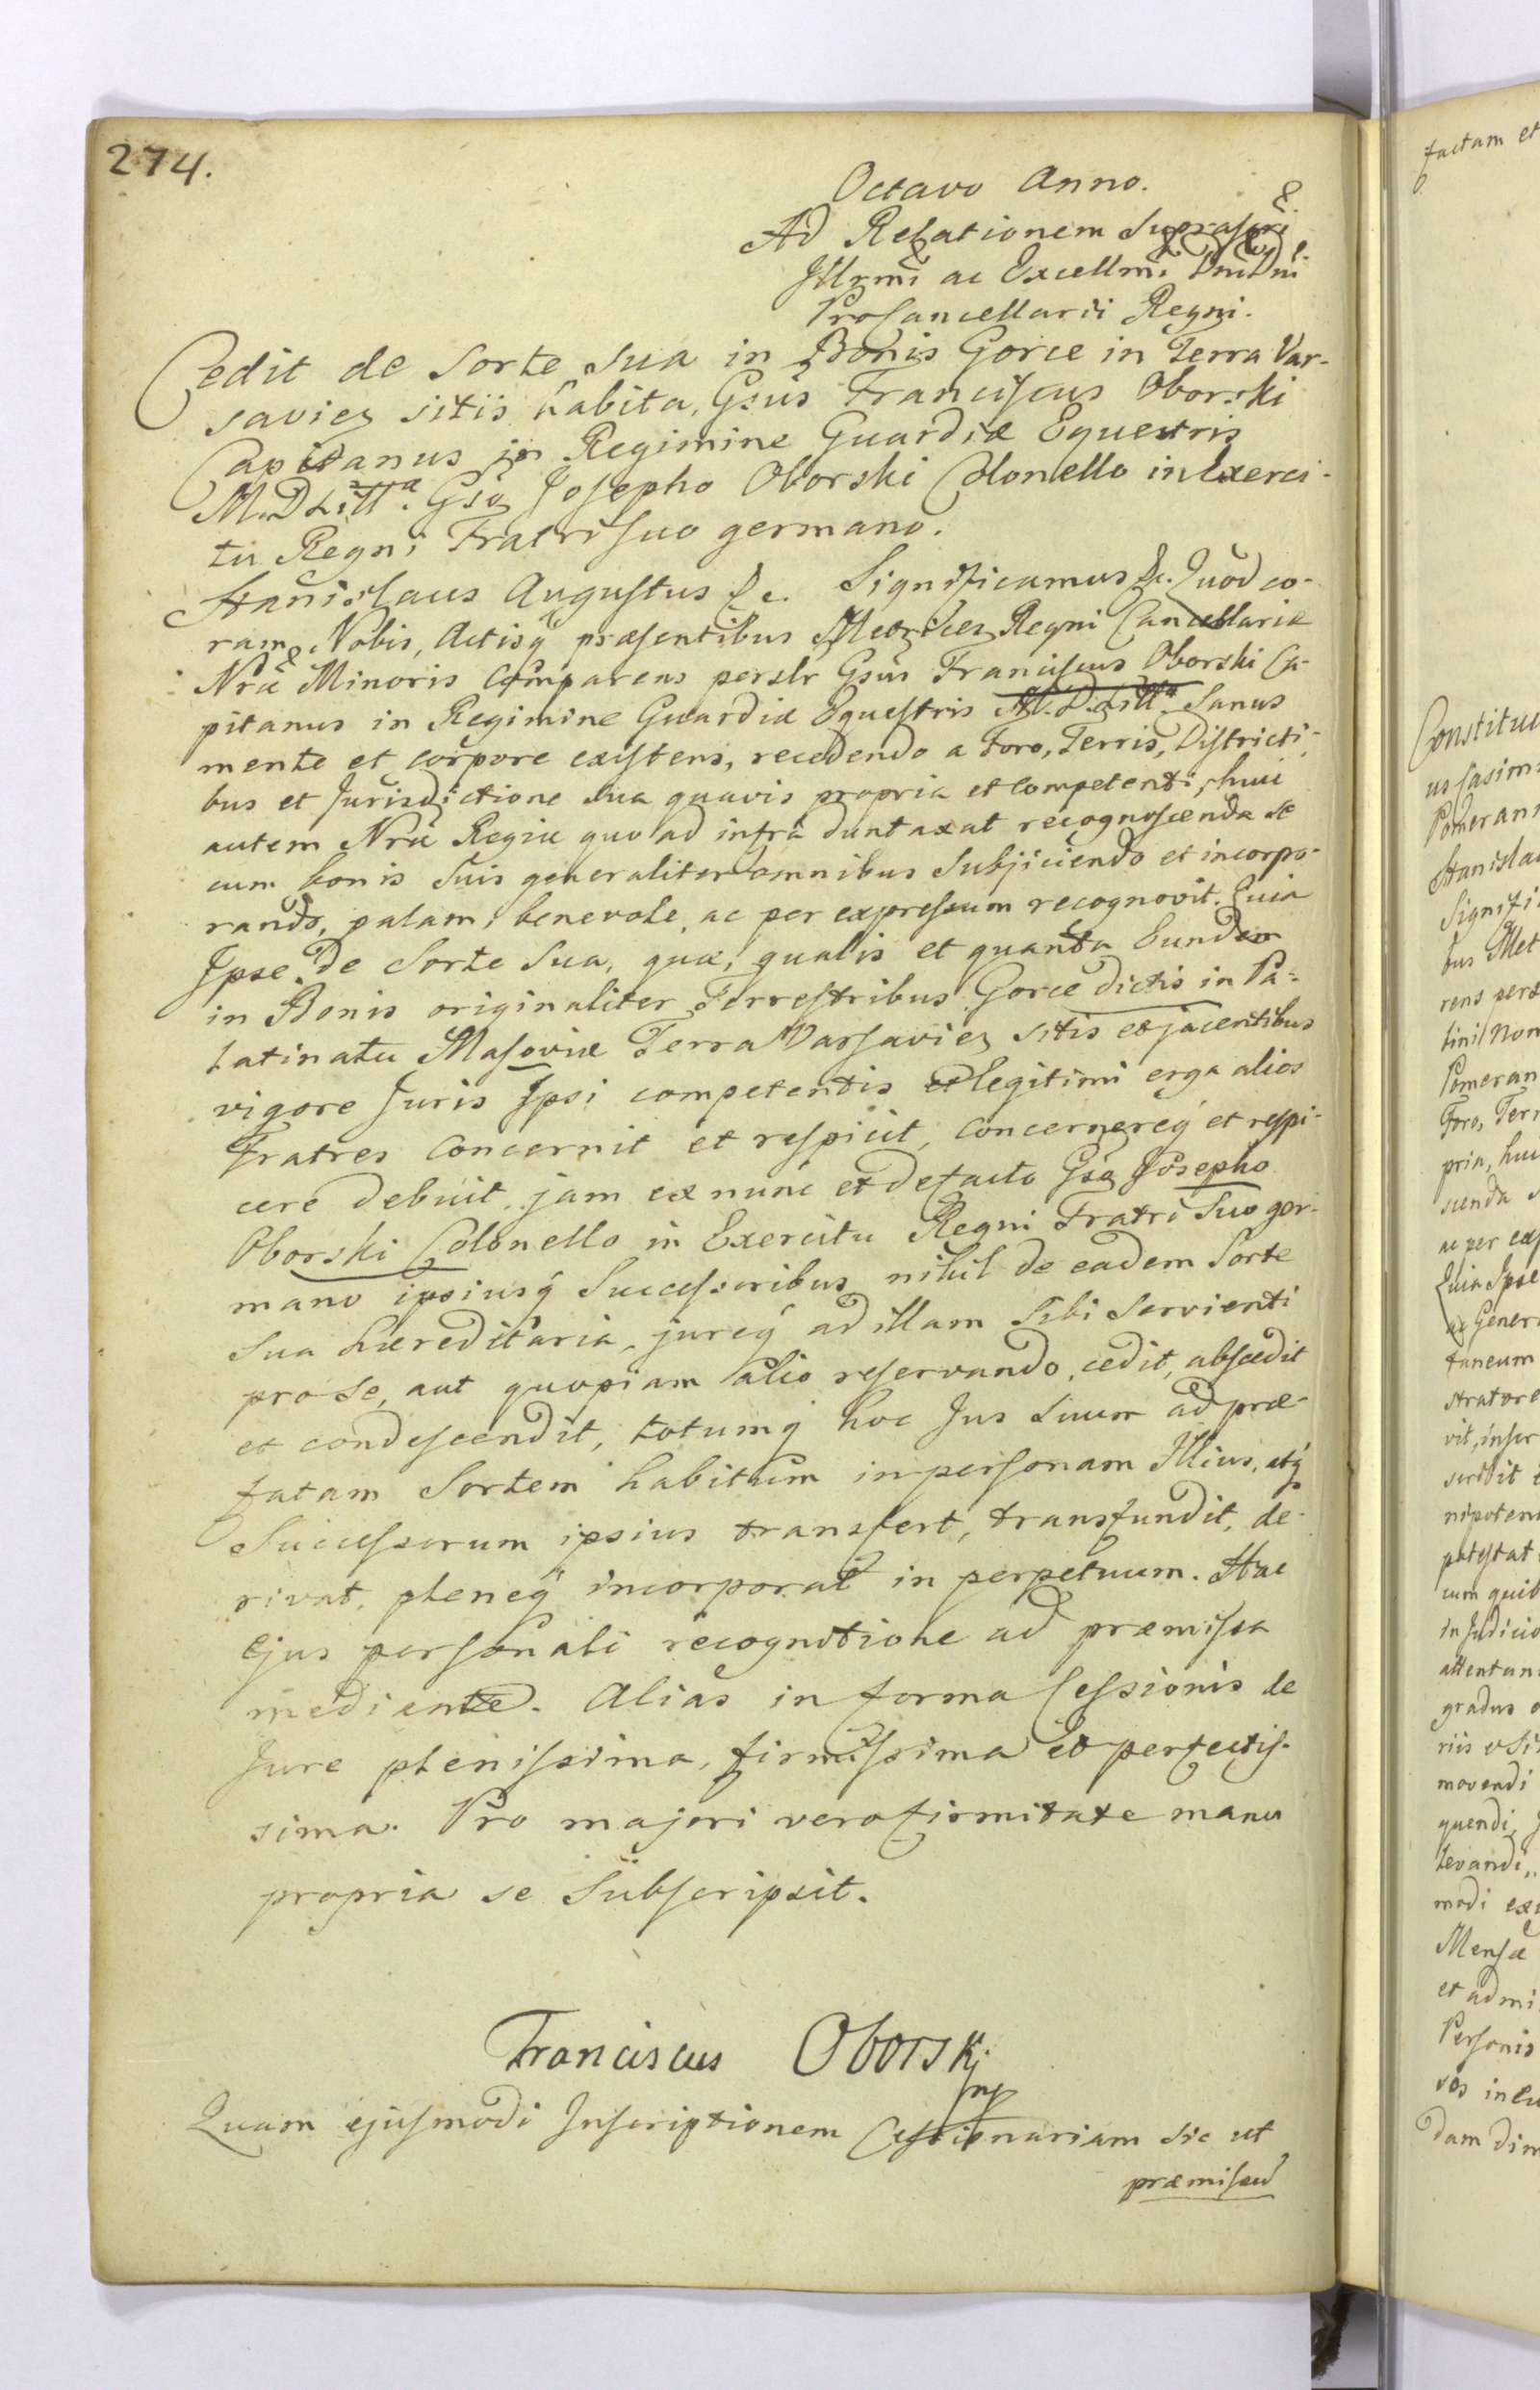 274.
Octavo Anno.
Ad Relationem Suprascri
Illrmi ac Excellmi Dni Dni
ProCancellarii Regni.
Cedit de Sorte Sua in Bonis Gorce in Terra Var-
saviey sitis habita, Gsus Franciscus Oborski
Capitanus in Regimine Guardiæ Equestris
M.D.Litt. Gso Josepho Oborski Colonello in Exerci-
tu Regni Fratri suo germano.
Stanislaus Augustus &c. Significamus &c. Quod co-
ram Nobis, Actisq præsentibus Metrices Regni Cancellariæ
Nræ Minoris Comparens persltr Gsus Franciscus Oborski Ca-
pitanus in Regimine Guardiæ Equestris M.D.Litt. Sanus
mente et corpore existens, recedendo a Foro, Terris, Districti-
bus et Jurisdictione sua quavis propria et competenti, huic
autem Nræ Regiæ quo ad infra duntaxat recognoscenda se
cum bonis suis generaliter omnibus Subjiciendo et incorpo-
rando, palam, benevole, ac per expressum recognovit. Quia
Ipse de Sorte Sua, quæ, qualis et quanta Eundem
in Bonis originaliter Terrestribus Gorce dictis in Pa-
latinatu Masoviæ Terra Varsaviey sitis et jacentibus
vigore Juris Ipsi competentis et legitimi erga alios
Fratres concernit et respicit, concernereq et respi-
cere debuit, jam ex nunc et de facto Gso Josepho
Oborski Colonello in Exercitu Regni Fratri Suo ger-
mano ipsiusq Successoribus nihil de eadem Sorte
Sua hæreditaria, jureq ad illam Sibi Servienti
pro Se, aut quopiam alio reservando, cedit, abscedit
et condescendit, totumq hoc Jus Suum ad præ-
fatam Sortem habitum in personam Illius, atq
Successorum ipsius transfert, transfundit, de-
rivat, pleneq incorporat in perpetuum. Hac
ejus personali recognitione ad præmissa
mediante. Alias in forma Cessionis de
Jure plenissima, firmissima et perfectis-
sima. Pro majori vero firmitate manu
propria se Subscripsit.
Franciscus Oborski
mp
Quam ejusmodi Inscriptionem Cessionariam sic ut
præmissum
factam et
Constitu
us Casim
Pomeran
Stanisla
Signifi
bus Met
rens pers
tini Non
Pomeran
Foro, Terr
pria, hu
scenda s
ac per ex
Quia Ipse
Gener
taneum
strator
vit, inser
scribit
nipoten
potestat
cum quib
in Judicio
attentan
gradus
riis
movendi
quendi,
levandi,
modi ex
Mensæ
et admi
Personis
vos in
dam dim